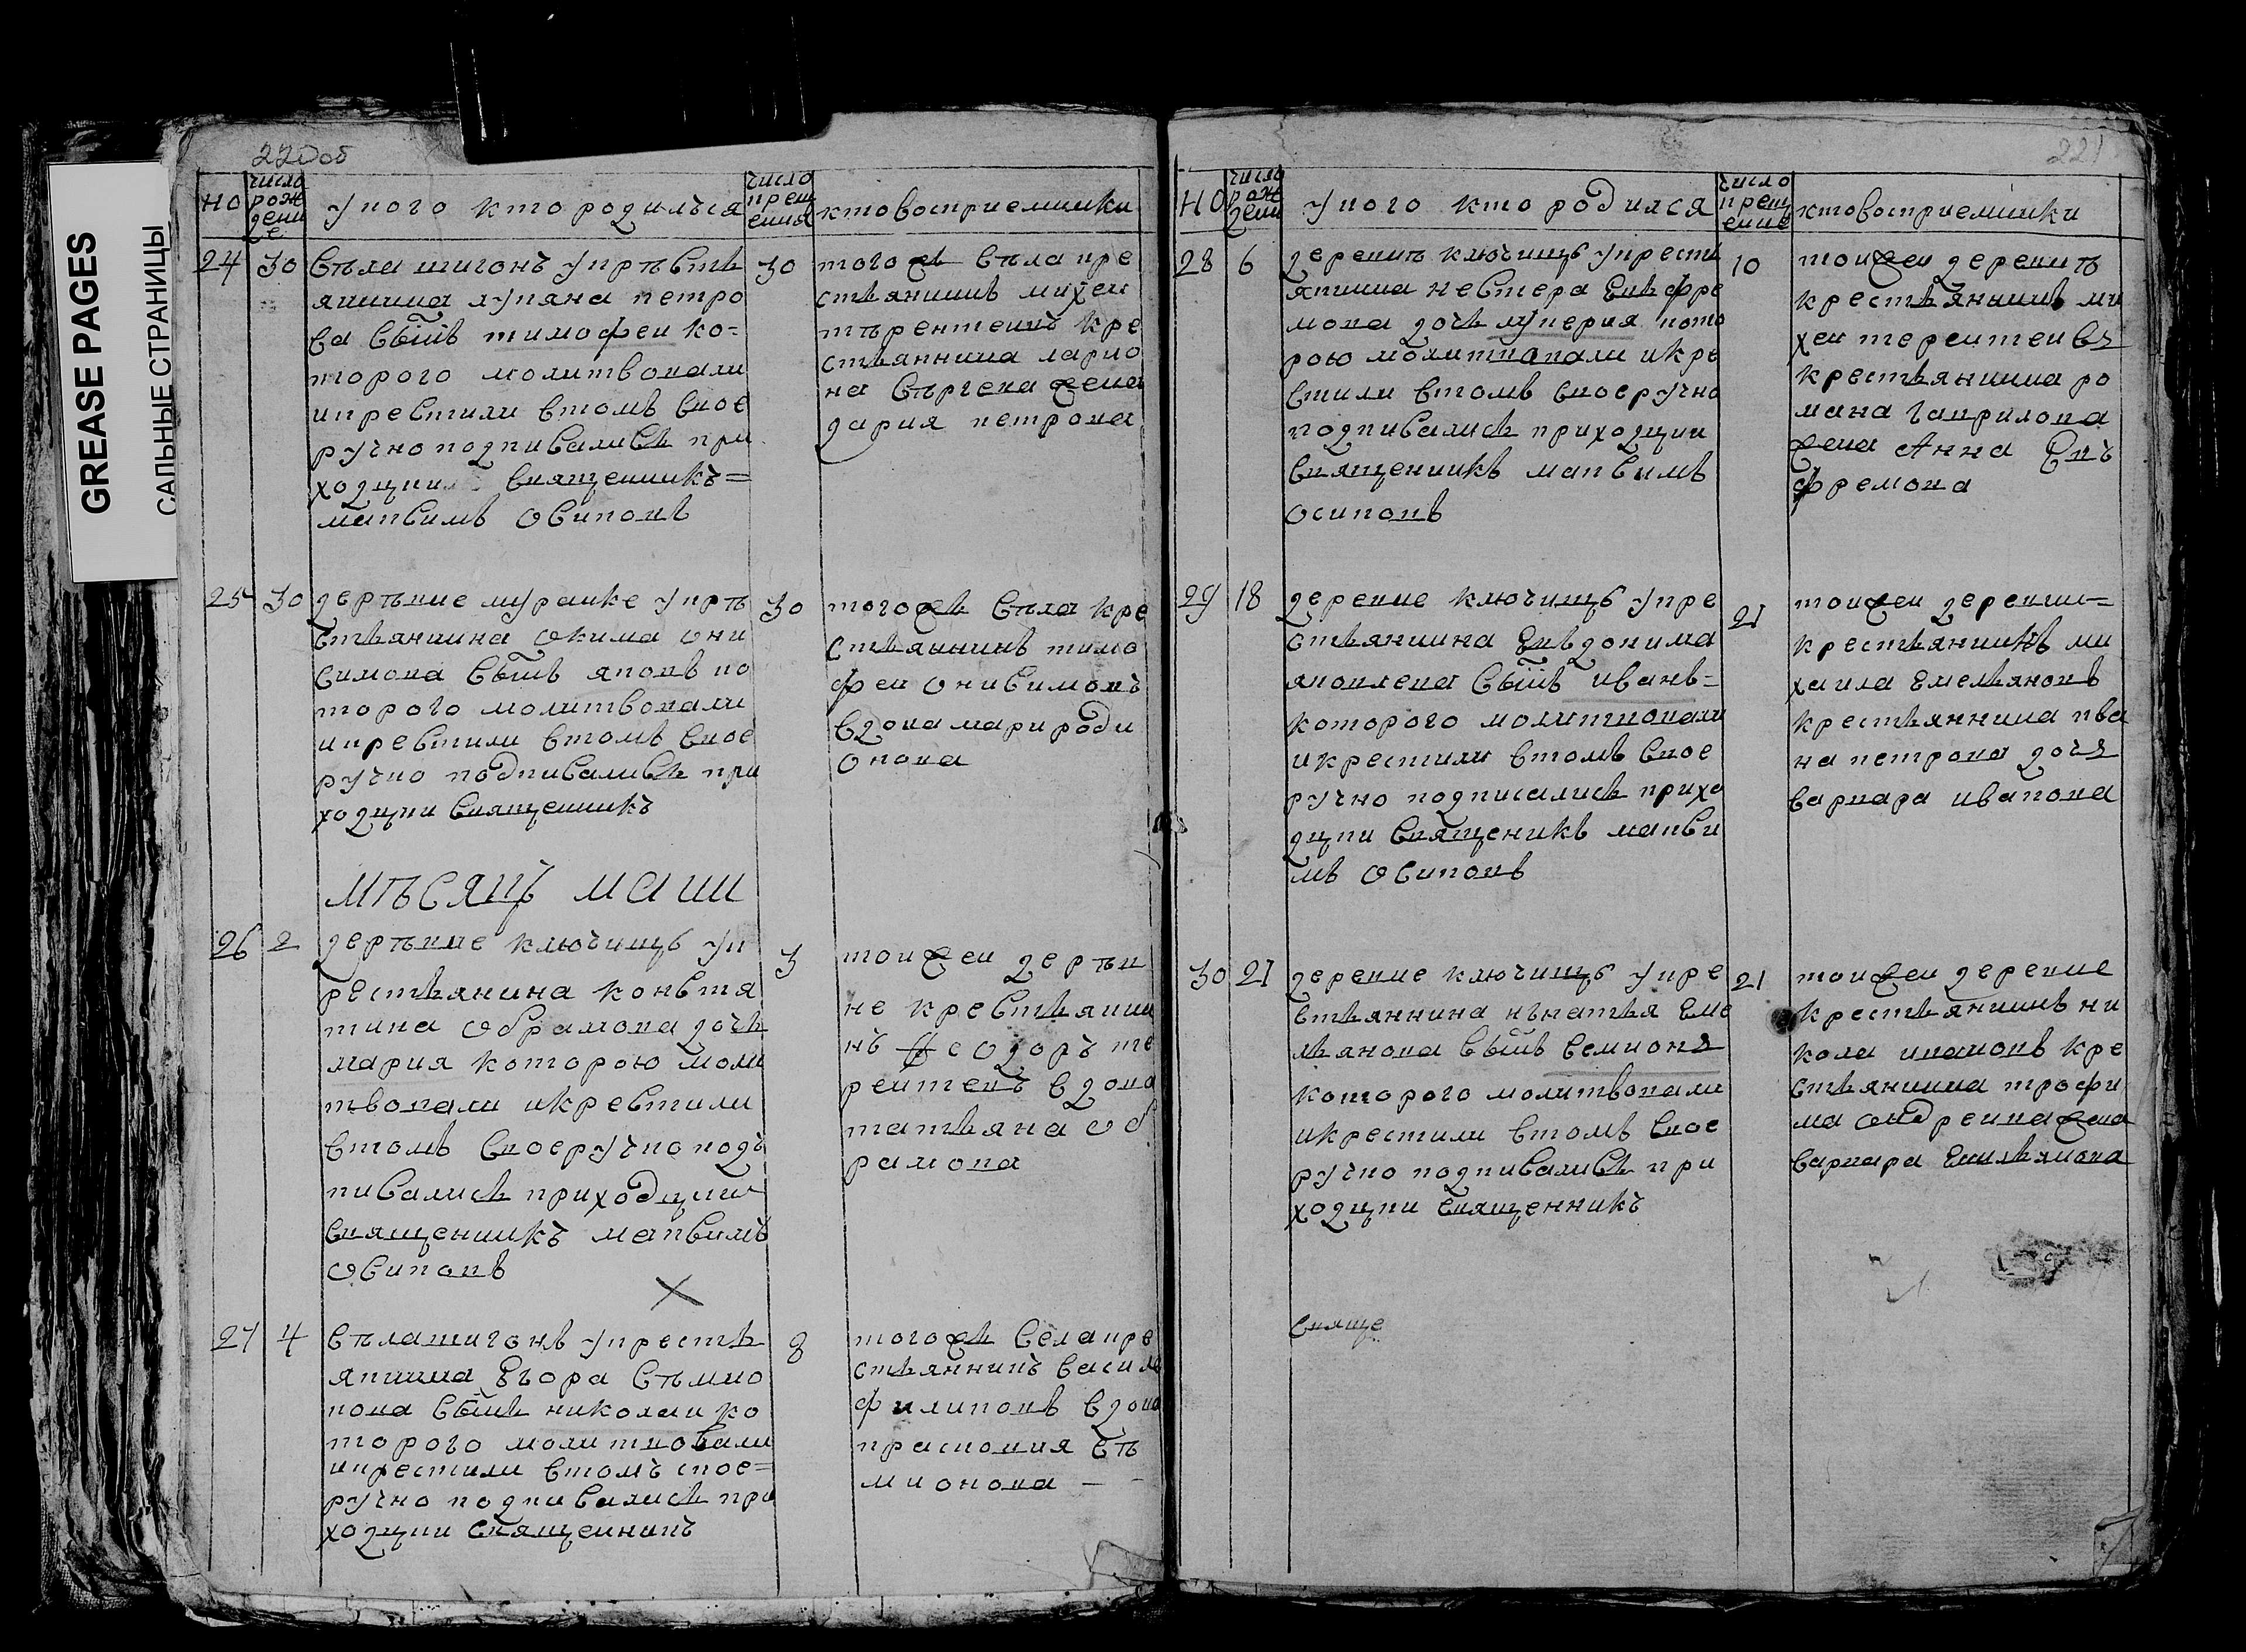 GREASE PAGES
САЛЬНЫЕ СТРАНИЦЫ
220об
НО
число рождение
у кого кто родилъся
число крещения
кто восприемники
24 30
села шигонъ у кръсть
янина лукяна петро
ва сынъ тимофеи ко=
торого молитвовали
и крестили в томъ свое
ручно подписались при
ходцкии священникъ=
максимъ осиповъ
30
того жъ села кре
стьянинъ михеи
търентеивъ кре
стьянина ларио
на съргева жена
дария петрова
25 30
деръвне мураике у кръ
стьянина окима они
симова сынъ яковъ ко
торого молитвовали
и крестили в томъ свое
ручно подписались при
ходцки священникъ
30
того жъ села кре
стьянинъ тимо
феи онисимовъ
вдова мари роди
онова
мѣсяцъ маии
26 2
деръвне ключищъ ук
рестьянина конъстя
тина обрамова дочь
мария которою моли
твовали и крестили
в томъ своеручно подъ
писались приходцкии
священникъ максимъ
осиповъ
3
тои жеи деръв
не крестьяни
нъ феодоръ те
рентевъ вдова
татьяна об
рамова
27 4
села шигонъ у кресть
янина егора съмио
нова сынъ николаи ко
торого молитвовали
и крестили в томъ свое=
ручно подписались при
ходцки священникъ
8
того жъ села кре
стьянинъ василе
филиповъ вдова
прасковия съ
мионова
221
НО
число рождени
у кого кто родился
число крещение
кто восприемники
28 6
деревнъ ключищъ у кресть
янина нестера евъфре
мова дочь лукерия кото
рою молитвовали и кре
стили в томъ своеручно
подписались приходцки
священникъ максимъ
осиповъ
10
тои жеи деревнъ
крестьянинъ ми
хеи терентеивъ
крестьянина ро
мана гаврилова
жена Анна евъ
фремова
29 18
деревне ключищъ у кре
стьянина евъдокима
яковлева сынъ иванъ=
которого молитвовали
и крестили в томъ свое
ручно подписались прихо
дцки священикъ макси
мъ осиповъ
21
тои жеи деревни=
крестьянинъ ми
хаила емельяновъ
крестьяннина ива
на петрова дочя
варвара иванова
30 21
деревне ключищъ у кре
стьяннина нъчатья еме
льянова сынъ семионъ
которого молитвовали
и крестили в томъ свое
ручно подписались при
ходцки священникъ
21
тои жеи деревне
крестьянинъ ни
кола ивановъ кре
стьянина трофи
ма ондреива жена
варвара емильянова
свяще